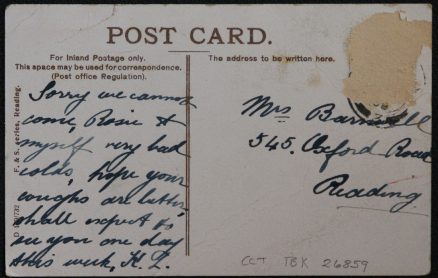 POST CARD.
For Inland Postage only.
This space may be used for correspondence.
(Post office Regulation).
The address to be written here.
Sorry we cannot
come, Rosie &
myself very bad
colds, hope your
coughs are better
shall expect to
see you one day
this week, H. L.
Mrs
545. Oxford Road
Reading
F. & S. series, Reading.
CCT TBK 26859